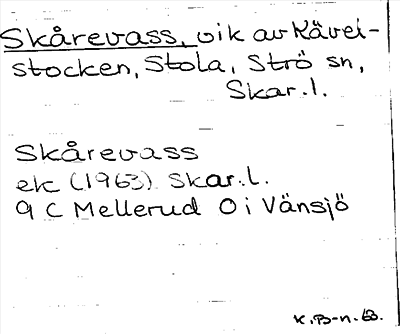 Skårevass, vik av Kävel-
stocken, Stola, Strö sn,
Skar. l.
Skårevass
ek (1963) Skar. l.
9 C Mellerud O i Vänsjö
K. B-n. 63.